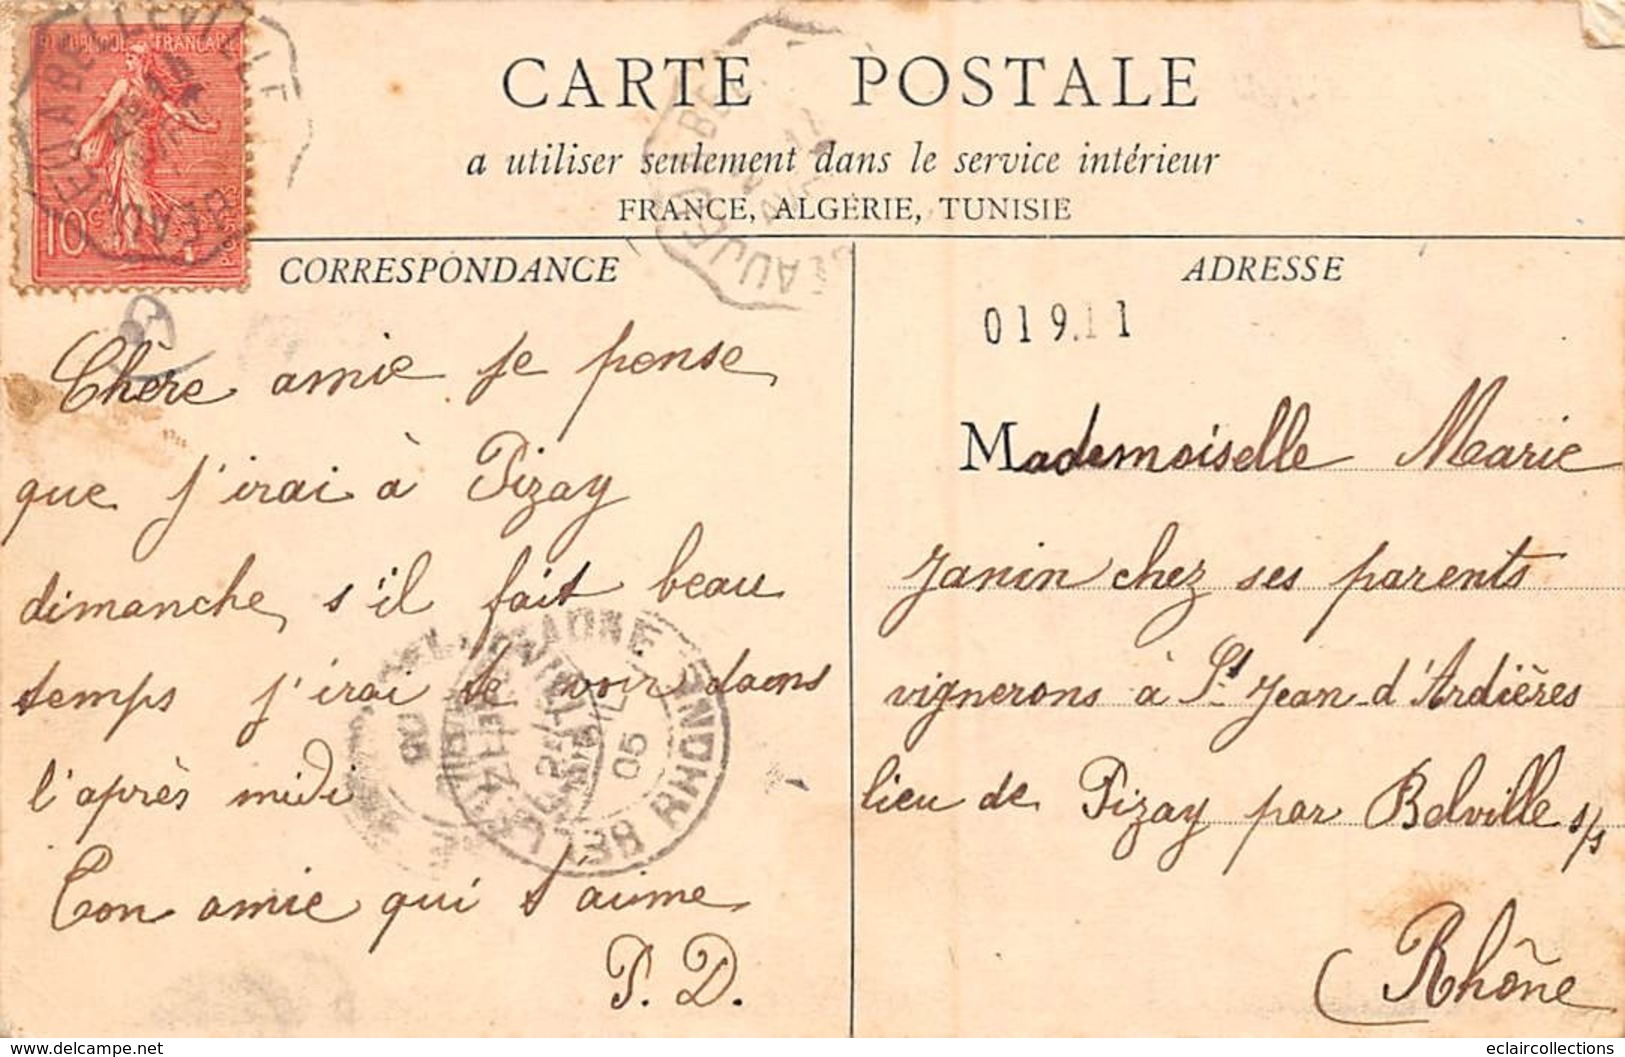 RÉPUBLIQUE FRANÇAISE
10c
POSTES
BEAUJEU A BELLEVILLE
CARTE POSTALE
a utiliser seulement dans le service intérieur
FRANCE, ALGÉRIE, TUNISIE
CORRESPONDANCE
ADRESSE
019.11
Chère amie je pense
que j'irai à Pizay
dimanche, s'il fait beau
temps j'irai te voir dans
l'après midi
Ton amie qui t'aime
P. D.
Mademoiselle Marie
Janin chez ses parents
vignerons à St Jean-d'Ardières
lieu de Pizay par Belville s/s
(Rhône
05
RHONE
delcampe.net
eclaircollections